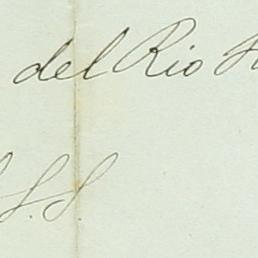 del Rio
S.S.